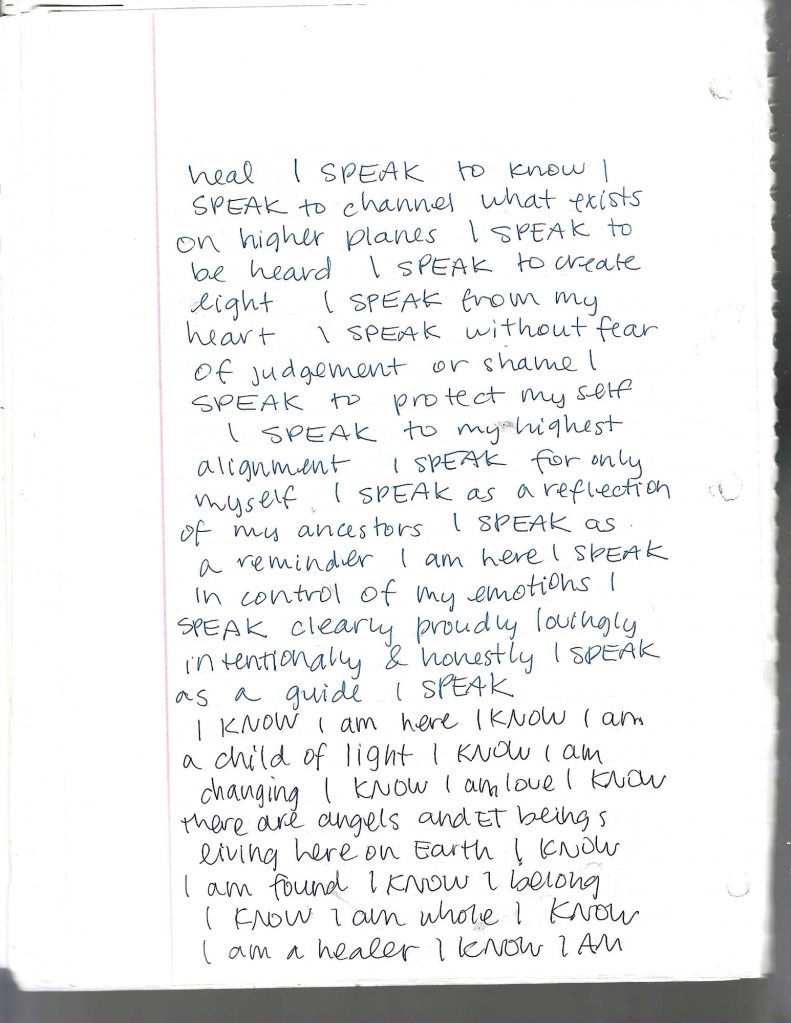 heal I SPEAK to know I
SPEAK to channel what exists
on higher planes I SPEAK to
be heard I SPEAK to create
light I SPEAK from my
heart I SPEAK without fear
of judgement or shame I
SPEAK to protect my self
I SPEAK to my highest
alignment I SPEAK for only
myself. I SPEAK as a reflection
of my ancestors I SPEAK as
a reminder I am here I SPEAK
in control of my emotions I
SPEAK clearly proudly lovingly
intentionally & honestly I SPEAK
as a guide I SPEAK
I KNOW I am here I KNOW I am
a child of light I KNOW I am
changing I KNOW I am love I KNOW
there are angels and ET beings
living here on Earth I KNOW
I am found I KNOW I belong
I KNOW I am whole I KNOW
I am a healer I KNOW I AM